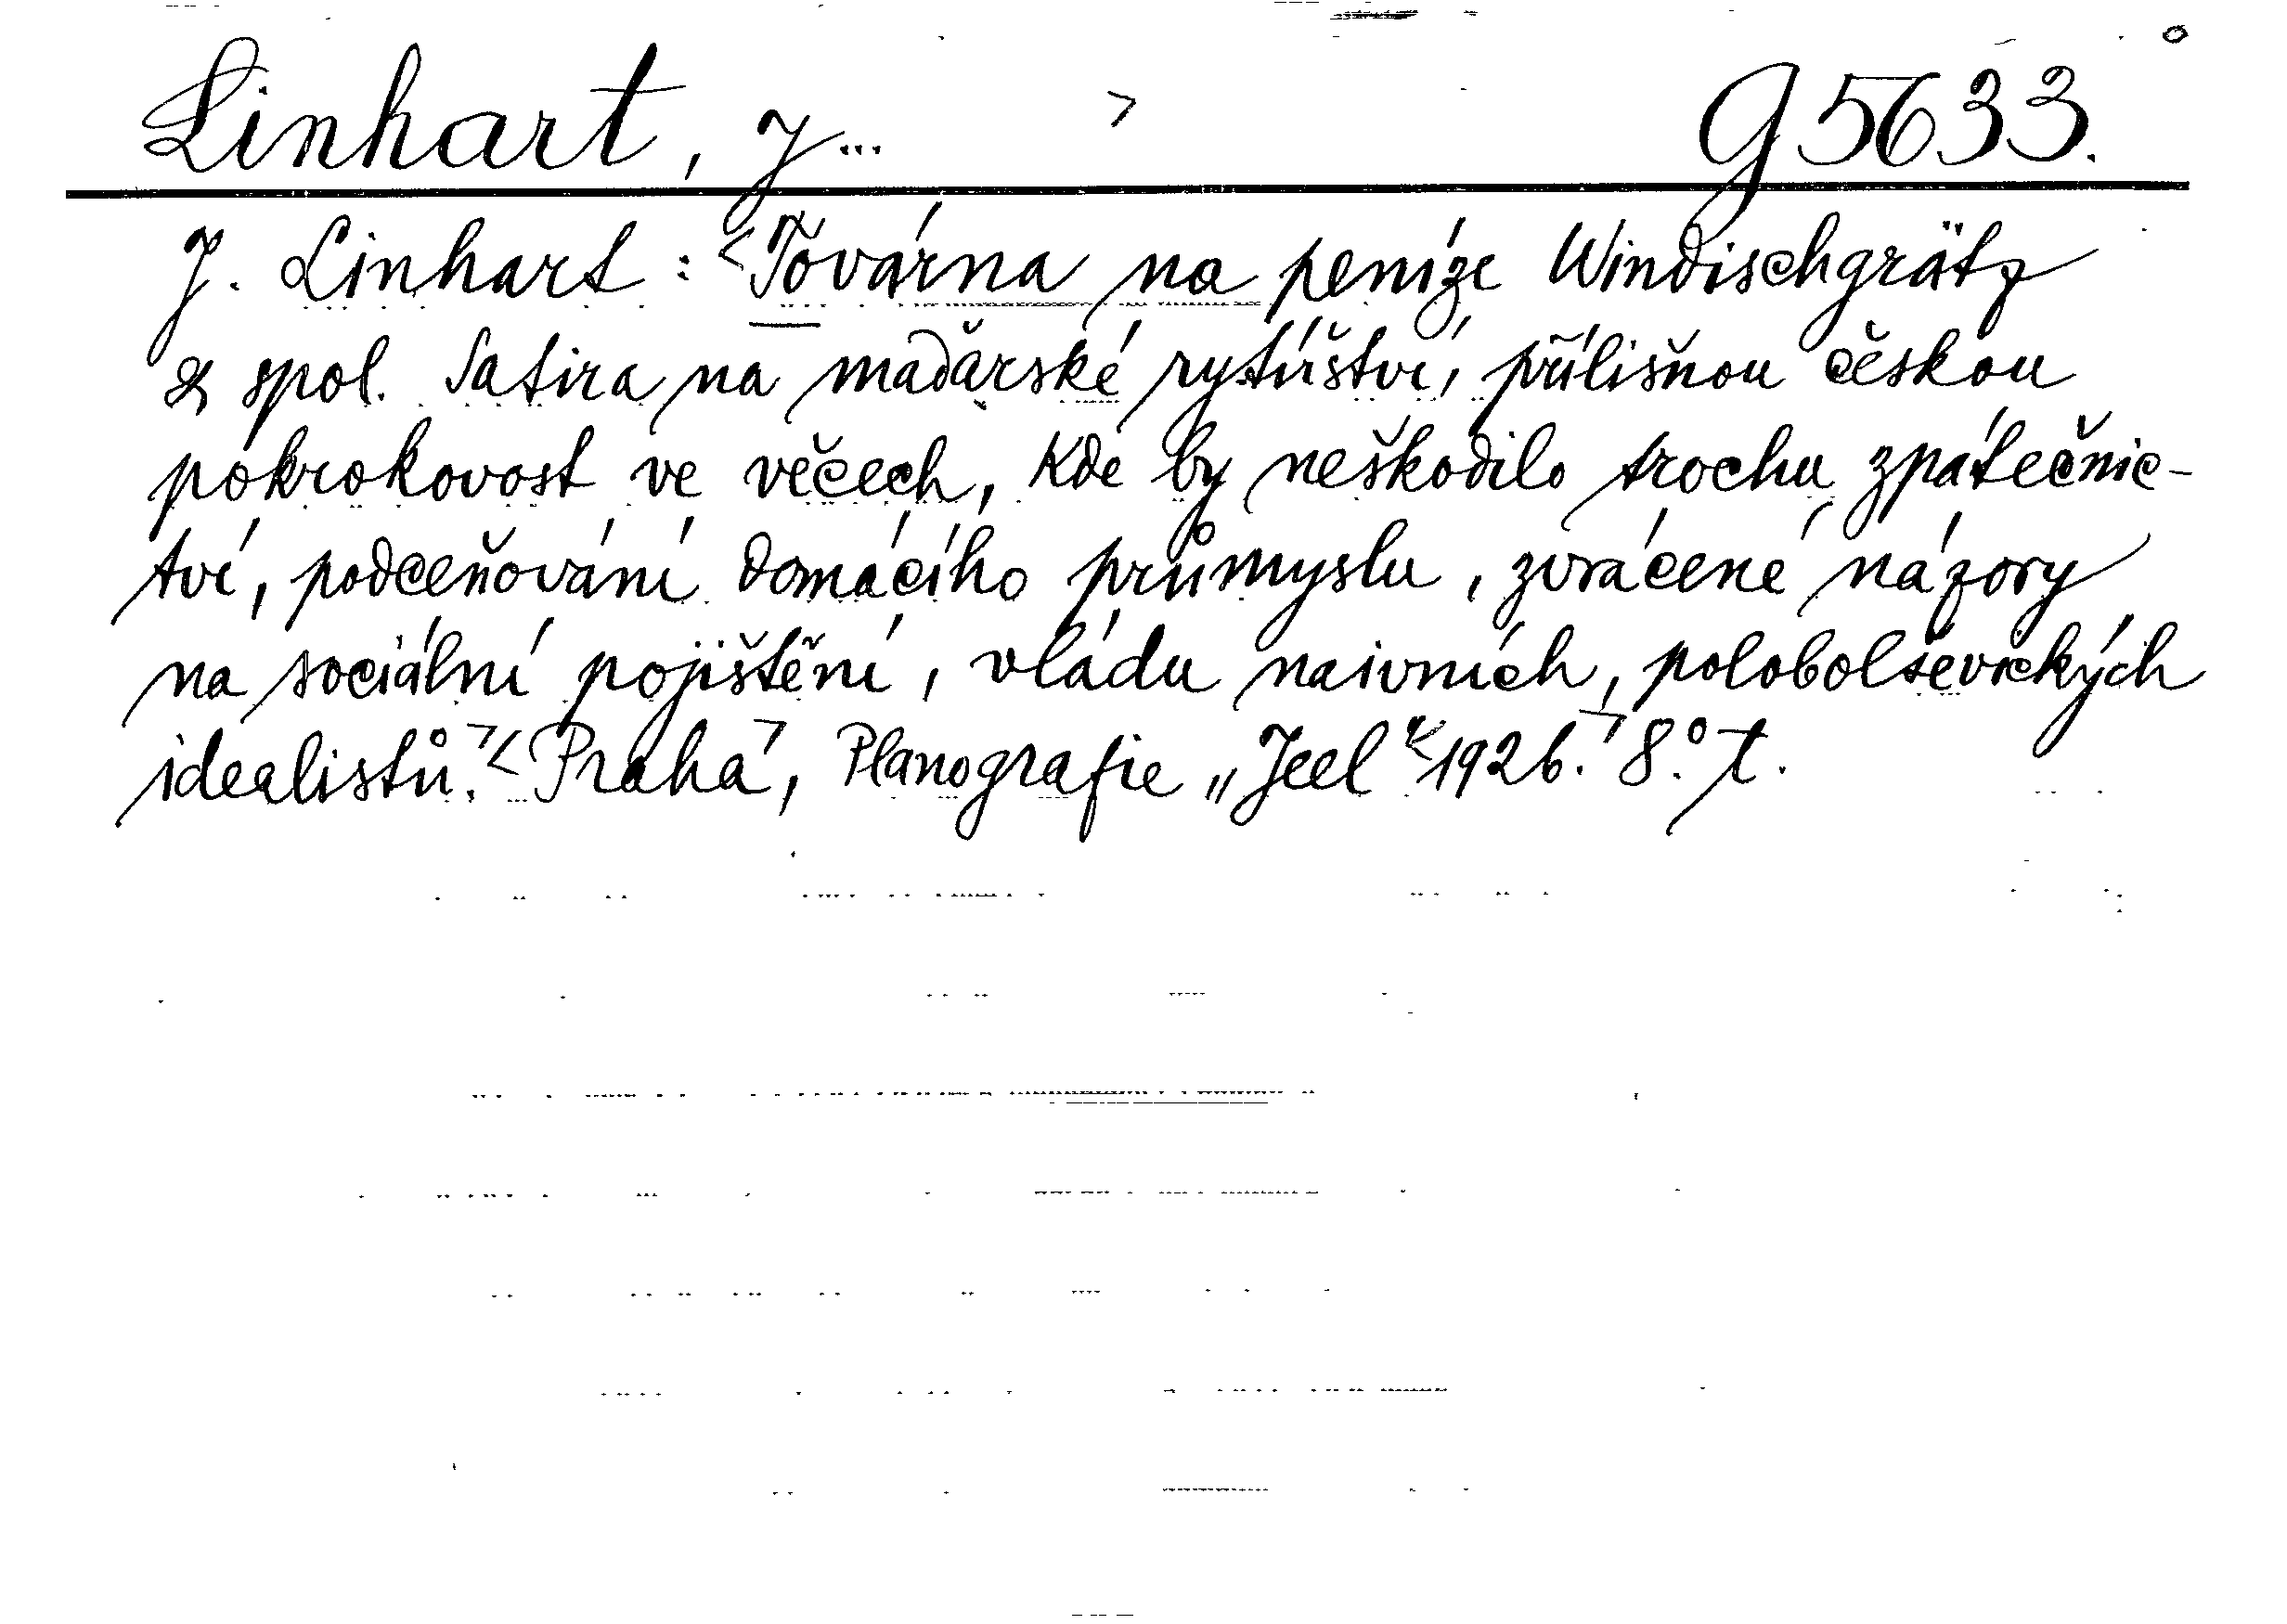 Linhart, J... > G 5633.
J. Linhart: <Továrna na peníze Windischgrätz
& spol. Satira na maďarské rytířství, přílišnou českou
pokrokovost ve věcech, kde by neškodilo trochu zpátečnic-
tví, podceňování domácího průmyslu, zvrácené názory
na sociální pojištění, vládu naivních, polobolševických
idealistů.> <Praha>, Planografie „Jeel" <1926.> 8.° t.